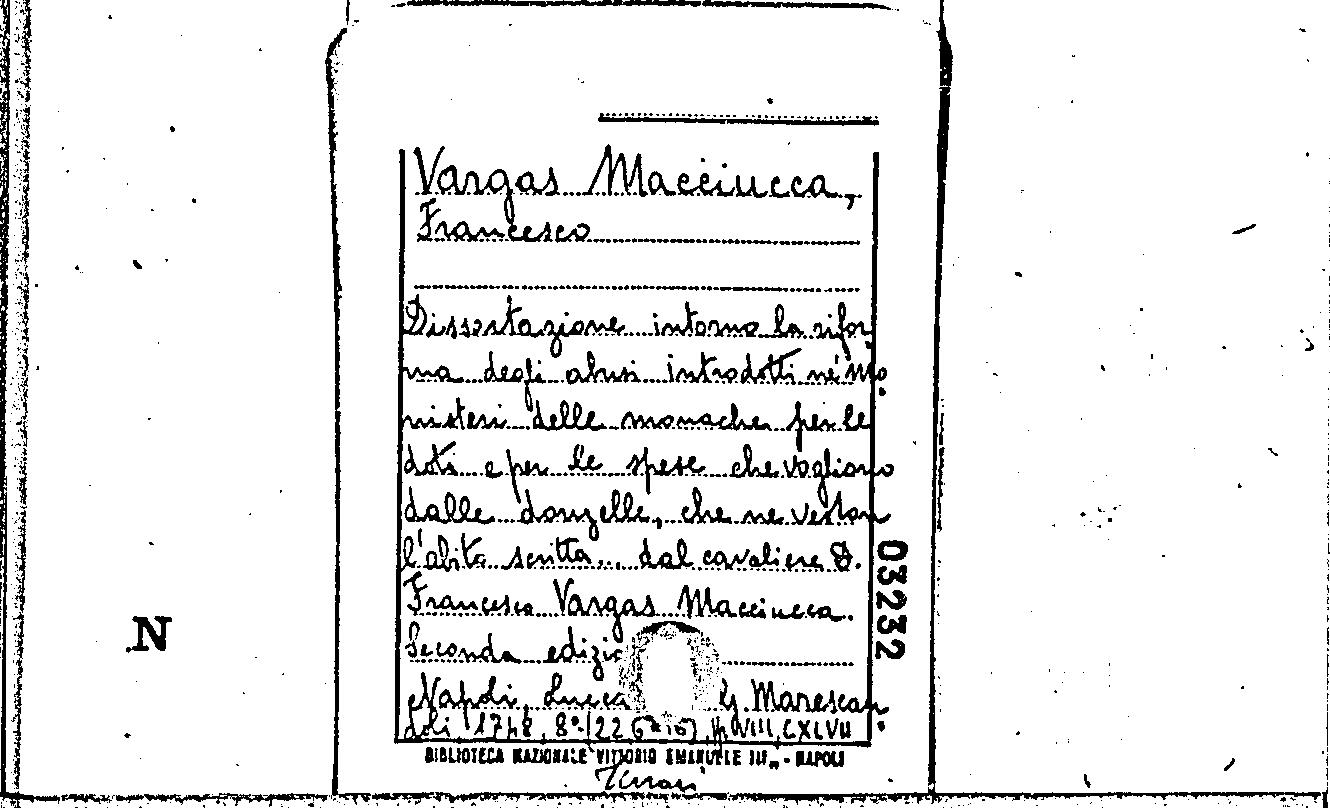 Vargas Macciucca,
Francesco
Dissertazione intorno la rifor
ma degli abusi introdotti ne' Mo
nisteri delle monache per le
doti e per le spese che vogliono
dalle donzelle, che ne veston
l'abito scritta... dal cavaliere D.
Francesco Vargas Macciucca.
Seconda edizio
Napoli, Lucca Marescan
doli 1748, 8° pp VIII, CXLVII
BIBLIOTECA NAZIONALE VITTORIO EMANUELE III„ - NAPOLI
03232
N